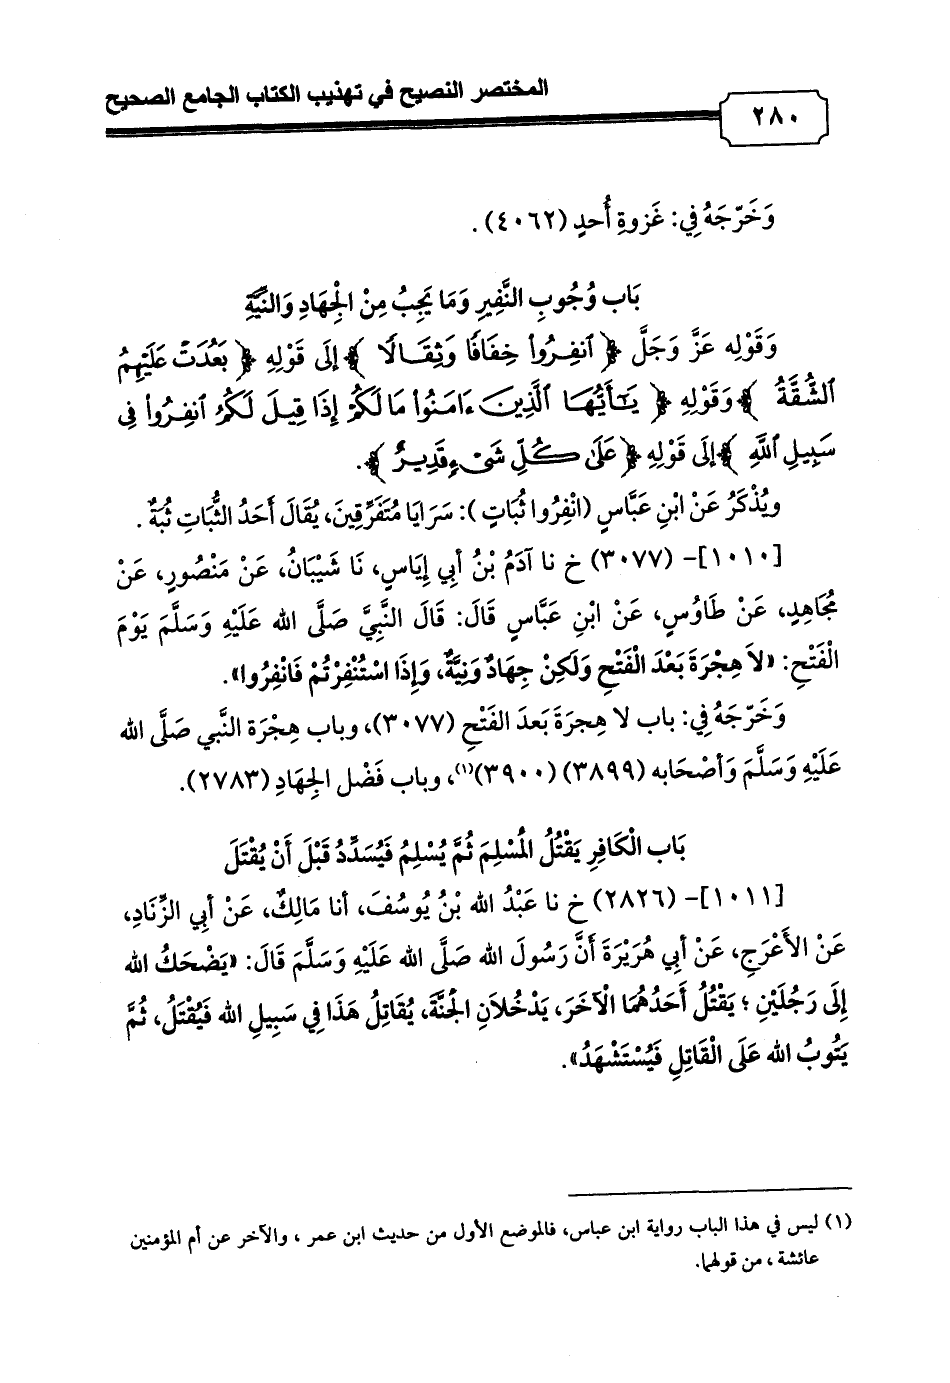 المختصر النصيح في تهذيب الكتاب الجامع الصحيح
٢٨٠
وَخَرّجَهُ فِي: غَزوةِ أُحدٍ (٤٠٦٢).
بَاب وُجُوبِ النَّفِيرِ وَمَا يَجِبُ مِنْ الْجِهَادِ وَالنِّيَّةِ
وَقَوْلِه عَزَّ وَجَلَّ ﴿ٱنفِرُوا۟ خِفَافًا وَثِقَالًا﴾ إلَى قَوْلِهِ ﴿بَعُدَتْ عَلَيْهِمُ
ٱلشُّقَّةُ﴾ وَقَوْلِهِ ﴿يَـٰٓأَيُّهَا ٱلَّذِينَ ءَامَنُوا۟ مَا لَكُمْ إِذَا قِيلَ لَكُمُ ٱنفِرُوا۟ فِى
سَبِيلِ ٱللَّهِ﴾ إلَى قَوْلِهِ ﴿عَلَىٰ كُلِّ شَىْءٍ قَدِيرٌ﴾.
ويُذْكَرُ عَنْ ابْنِ عَبَّاسٍ (انْفِرُوا ثُبَاتٍ): سَرَايا مُتَفَرِّقِينَ، يُقَالَ أَحَدُ الثُّبَاتِ ثُبَةٌ.
[١٠١٠]- (٣٠٧٧) خ نا آدَمُ بْنُ أَبِي إيَاسٍ، نَا شَيْبَانُ، عَنْ مَنْصُورٍ، عَنْ
مُجَاهِدٍ، عَنْ طَاوُسٍ، عَنْ ابْنِ عَبَّاسٍ قَالَ: قَالَ النَّبِيَّ صَلَّى الله عَلَيْهِ وَسَلَّمَ يَوْمَ
الْفَتْحِ: «لاَ هِجْرَةَ بَعْدَ الْفَتْحِ وَلَكِنْ جِهَادٌ وَنِيَّةٌ، وَإِذَا اسْتُنْفِرْتُمْ فَانْفِرُوا».
وَخَرّجَهُ فِي: باب لا هِجرَةَ بَعدَ الفَتْحِ (٣٠٧٧)، وباب هِجْرَة النَّبي صَلَّى الله
عَلَيْهِ وَسَلَّمَ وَأصْحَابه (٣٨٩٩) (٣٩٠٠)(١)، وباب فَضْل الجِهَادِ (٢٧٨٣).
بَاب الْكَافِرِ يَقْتُلُ الْمُسْلِمَ ثُمَّ يُسْلِمُ فَيُسَدِّدُ قَبْلَ أَنْ يُقْتَلَ
[١٠١١]- (٢٨٢٦) خ نا عَبْدُ الله بْنُ يُوسُفَ، أنا مَالِكٌ، عَنْ أبي الزِّنَادِ،
عَنْ الأَعْرَجِ، عَنْ أبي هُرَيْرَةَ أَنَّ رَسُولَ الله صَلَّى الله عَلَيْهِ وَسَلَّمَ قَالَ: «يَضْحَكُ الله
إِلَى رَجُلَيْنِ؛ يَقْتُلُ أَحَدُهُمَا الْآخَرَ، يَدْخُلاَنِ الْجَنَّةَ، يُقَاتِلُ هَذَا فِي سَبِيلِ الله فَيُقْتَلُ، ثُمَّ
يَتُوبُ الله عَلَى الْقَاتِلِ فَيُسْتَشْهَدُ».
(١) ليس في هذا الباب رواية ابن عباس، فالموضع الأول من حديث ابن عمر، والآخر عن أم المؤمنين
عائشة، من قولهما.